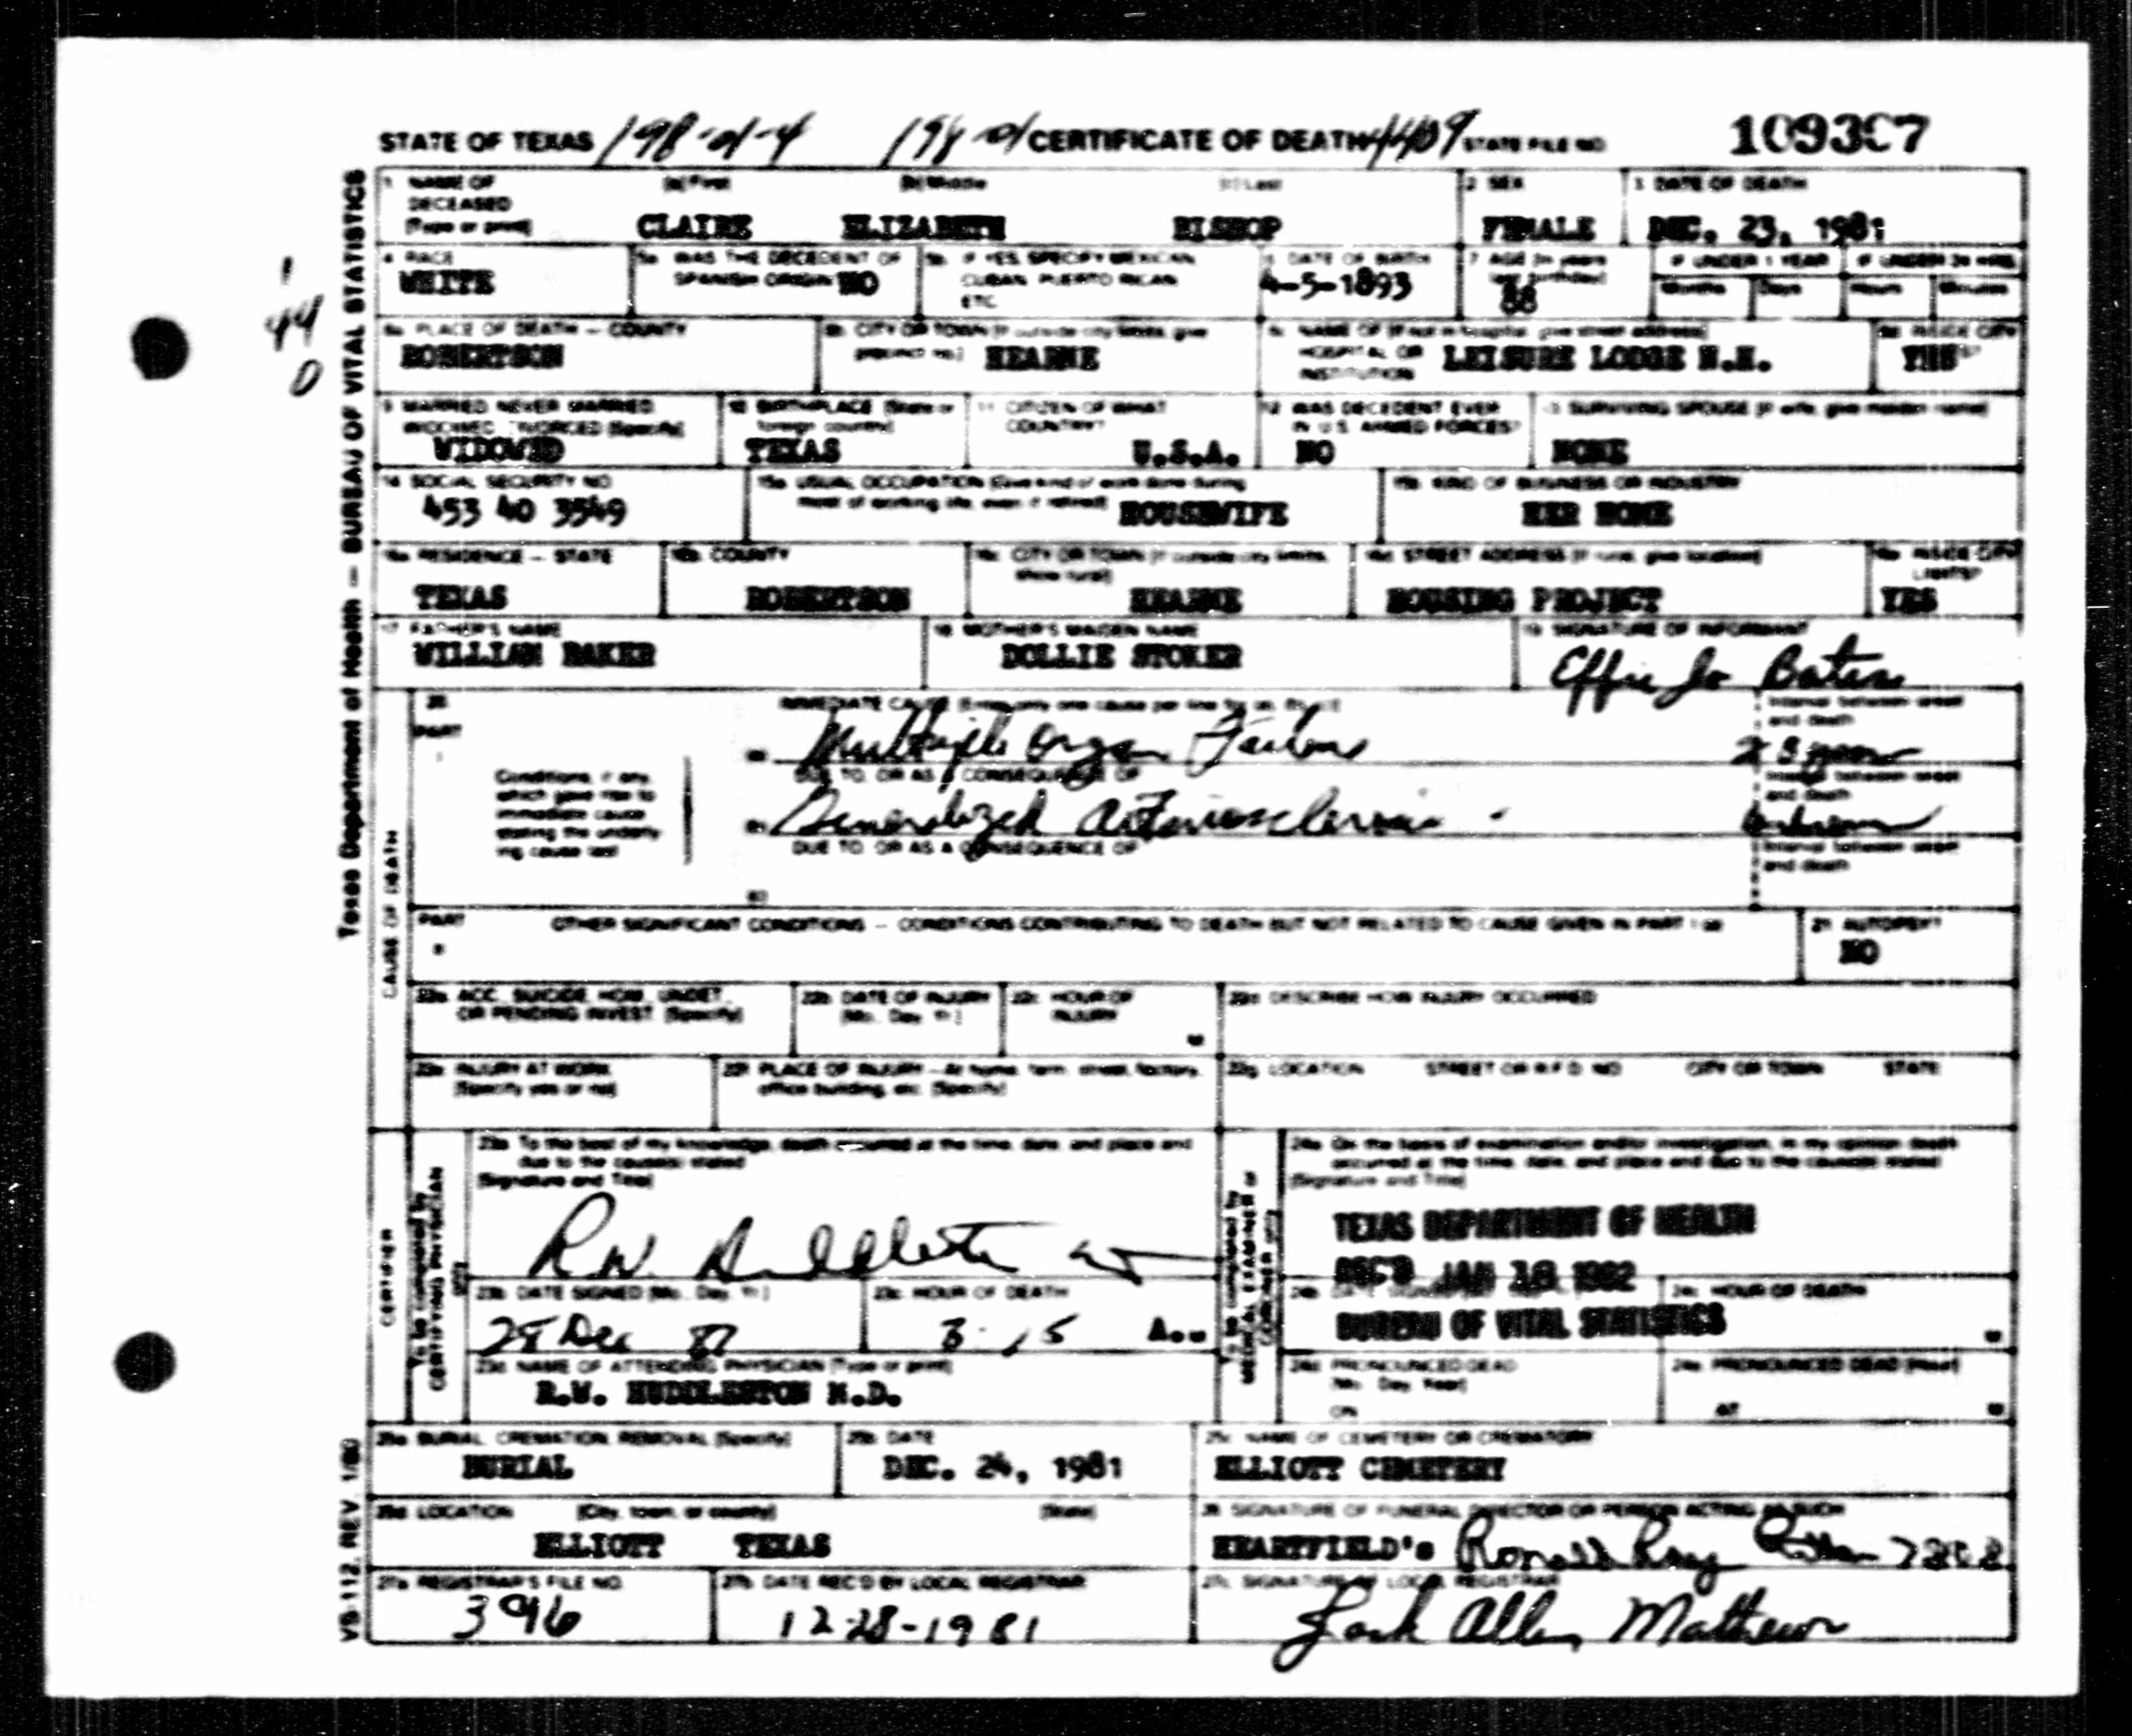 STATE OF TEXAS CERTIFICATE OF DEATH STATE FILE NO.
Texas Department of Health — BUREAU OF VITAL STATISTICS
1 NAME OF DECEASED (Type or print) (a) First (b) Middle (c) Last 2 SEX 3 DATE OF DEATH
CLAIRE ELIZABETH BISHOP FEMALE DEC. 23, 1981
4 RACE 5a WAS THE DECEDENT OF SPANISH ORIGIN 5b IF YES, SPECIFY MEXICAN, CUBAN, PUERTO RICAN, ETC. 6 DATE OF BIRTH 7 AGE (In years last birthday) IF UNDER 1 YEAR IF UNDER 24 HRS.
Months Days Hours Minutes
WHITE NO 4-5-1893 88
8a PLACE OF DEATH — COUNTY 8b CITY OR TOWN (If outside city limits, give precinct no.) 8c NAME OF (If not in hospital, give street address) HOSPITAL OR INSTITUTION 8d INSIDE CITY
ROBERTSON HEARNE LEISURE LODGE N.H. YES
9 MARRIED NEVER MARRIED WIDOWED DIVORCED (Specify) 10 BIRTHPLACE (State or foreign country) 11 CITIZEN OF WHAT COUNTRY? 12 WAS DECEDENT EVER IN U.S. ARMED FORCES? 13 SURVIVING SPOUSE (If wife, give maiden name)
WIDOWED TEXAS U.S.A. NO NONE
14 SOCIAL SECURITY NO. 15a USUAL OCCUPATION (Give kind of work done during most of working life, even if retired) 15b KIND OF BUSINESS OR INDUSTRY
453 40 3549 HOUSEWIFE HER HOME
16a RESIDENCE — STATE 16b COUNTY 16c CITY OR TOWN (If outside city limits, show rural) 16d STREET ADDRESS (If rural, give location) 16e INSIDE CITY LIMITS?
TEXAS ROBERTSON HEARNE HOUSING PROJECT YES
17 FATHER'S NAME 18 MOTHER'S MAIDEN NAME 19 SIGNATURE OF INFORMANT
WILLIAM BAKER DOLLIE STOKER Effie Jo Bates
CAUSE OF DEATH
20 PART I IMMEDIATE CAUSE (Enter only one cause per line for (a), (b), (c)) Interval between onset and death
(a) Multiple Organ Failure
DUE TO, OR AS A CONSEQUENCE OF Interval between onset and death
Conditions, if any, which gave rise to immediate cause stating the underlying cause last
(b) Generalized Arteriosclerosis Unknown
DUE TO, OR AS A CONSEQUENCE OF Interval between onset and death
(c)
PART II OTHER SIGNIFICANT CONDITIONS — CONDITIONS CONTRIBUTING TO DEATH BUT NOT RELATED TO CAUSE GIVEN IN PART I (a) 21 AUTOPSY?
NO
22a ACC., SUICIDE, HOM., UNDET., OR PENDING INVEST. (Specify) 22b DATE OF INJURY (Mo., Day, Yr.) 22c HOUR OF INJURY M 22d DESCRIBE HOW INJURY OCCURRED
22e INJURY AT WORK (Specify yes or no) 22f PLACE OF INJURY—At home, farm, street, factory, office building, etc. (Specify) 22g LOCATION STREET OR R.F.D. NO. CITY OR TOWN STATE
CERTIFIER
To be completed by CERTIFYING PHYSICIAN
23a To the best of my knowledge, death occurred at the time, date, and place and due to the cause(s) stated
(Signature and Title)
R.W. Huddleston
To be completed by MEDICAL EXAMINER or CORONER
24a On the basis of examination and/or investigation, in my opinion death occurred at the time, date, and place and due to the cause(s) stated
(Signature and Title)
TEXAS DEPARTMENT OF HEALTH
REC'D JAN 18 1982
BUREAU OF VITAL STATISTICS
23b DATE SIGNED (Mo., Day, Yr.) 23c HOUR OF DEATH 24c HOUR OF DEATH
28 Dec 81 A.M
23d NAME OF ATTENDING PHYSICIAN (Type or print) 24d PRONOUNCED DEAD (Mo., Day, Year) ON 24e PRONOUNCED DEAD (Hour) AT M
R.W. HUDDLESTON M.D.
25a BURIAL, CREMATION, REMOVAL (Specify) 25b DATE 25c NAME OF CEMETERY OR CREMATORY
BURIAL DEC. 24, 1981 ELLIOTT CEMETERY
25d LOCATION (City, town, or county) (State) 26 SIGNATURE OF FUNERAL DIRECTOR OR PERSON ACTING AS SUCH
ELLIOTT TEXAS HEARTFIELD's Ronald Ray
27a REGISTRAR'S FILE NO. 27b DATE REC'D BY LOCAL REGISTRAR 27c SIGNATURE OF LOCAL REGISTRAR
396 12-28-1981 Jack Allen Mathews
VS-112, REV. 1/80